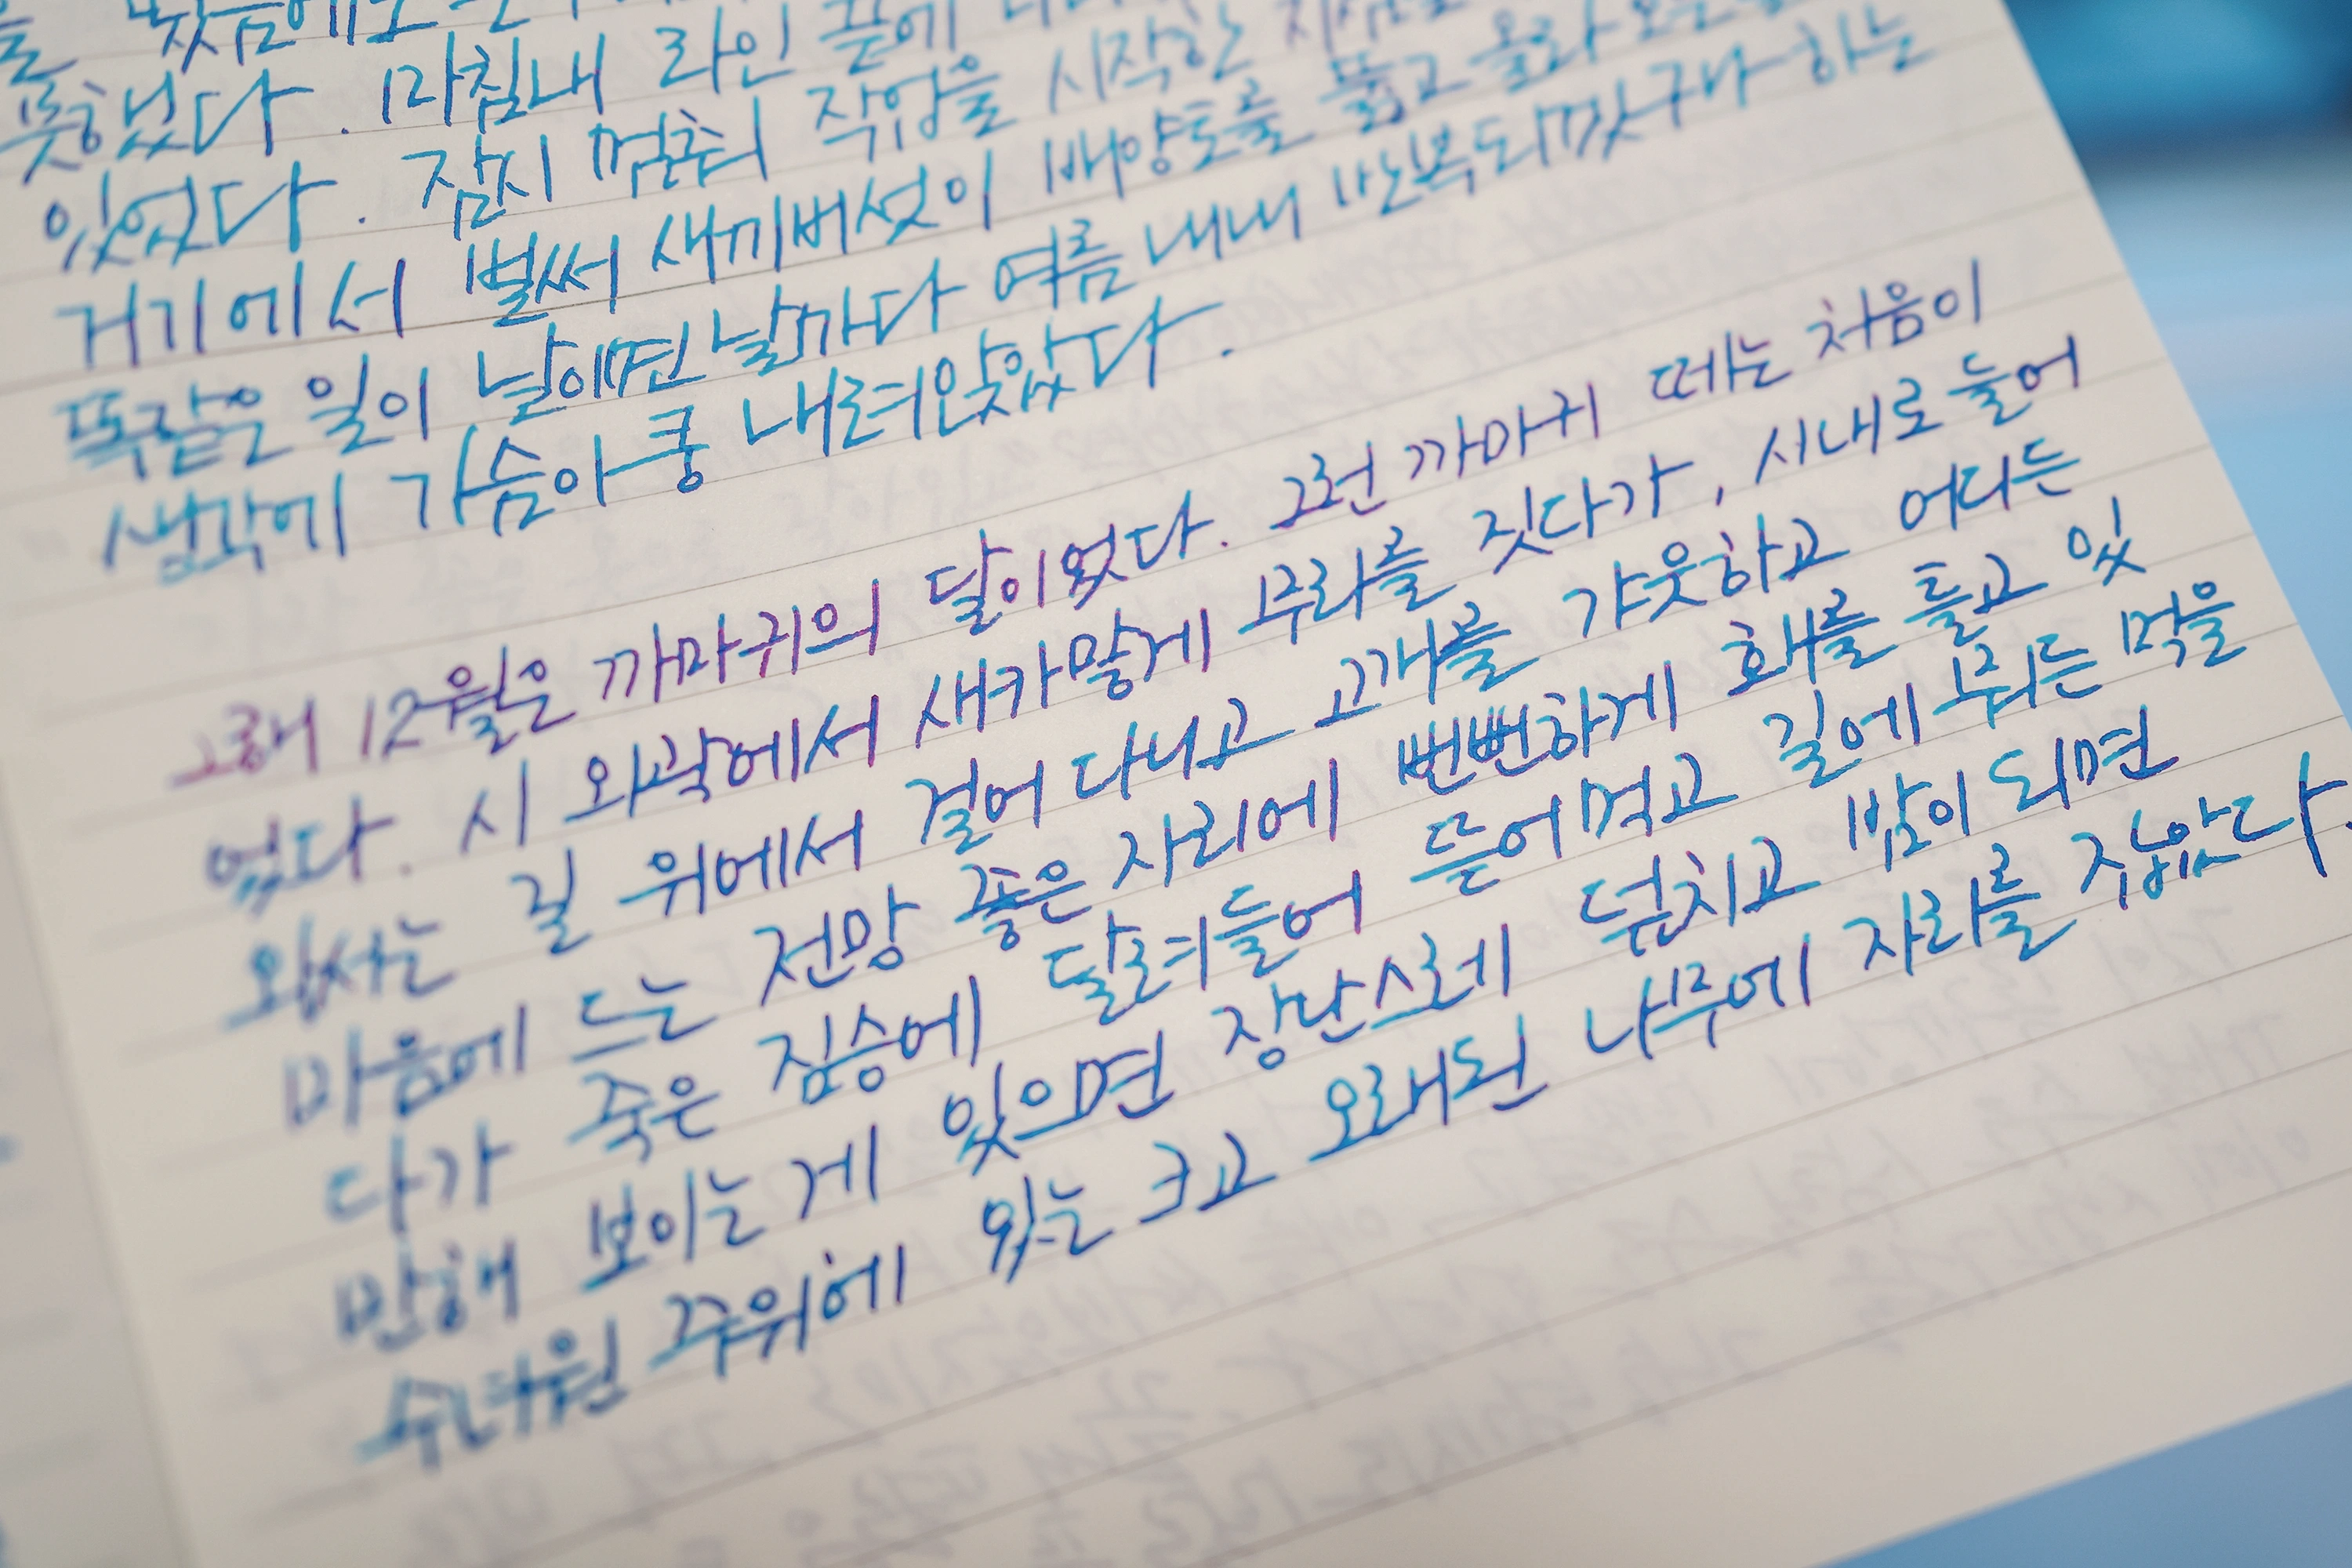 못했다. 마침내 라인 끝에
있었다. 잠시 멈춰 작업을 시작한
거기에서 벌써 새끼버섯이 배양토를 뚫고 올라
똑같은 일이 날이면 날마다 여름 내내 반복되겠구나 하는
생각에 가슴이 쿵 내려앉았다.
그해 12월은 까마귀의 달이었다. 그런 까마귀 떼는 처음이
었다. 시 외곽에서 새카맣게 무리를 짓다가, 시내로 들어
와서는 길 위에서 걸어 다니고 고개를 갸웃하고 어디든
마음에 드는 전망 좋은 자리에 뻔뻔하게 홰를 틀고 있
다가 죽은 짐승에 달려들어 뜯어먹고 길에 뭐든 먹을
만해 보이는 게 있으면 장난스레 덮치고 밤이 되면
수녀원 주위에 있는 크고 오래된 나무에 자리를 잡았다.